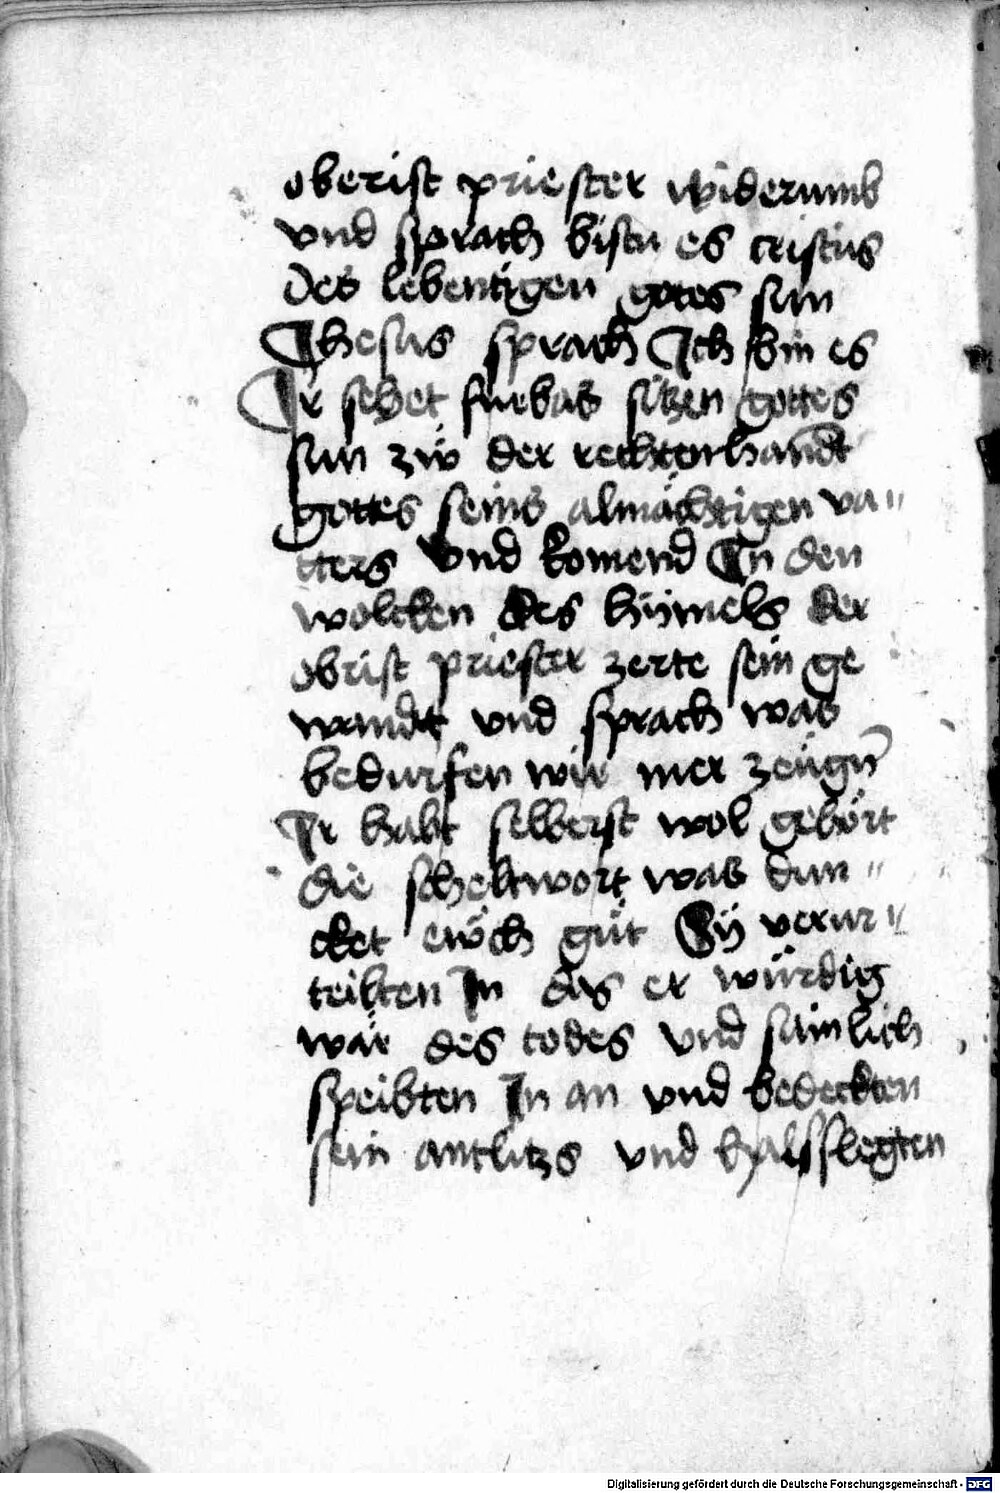 oberist priester widerumb
vnd sprach bistu es cristus
des lebentigen gotes sun
Jhesus sprach Ich bin es
Ir sehet furbas sitzen gottes
sun zw der rechtenhandt
gottes seins almächtigen va〃
tters vnd komend In den
wolcken des hymels der
obrist priester zerte sein ge
wandt vnd sprach was
bedurfen wir mer zeugn̄
Ir habt selberst wol gehört
die scheltwort was dun〃
cket ewch gut Sy verur〃
teilten In das er würdig
wär des todes vnd sämlich
speibten In an vnd bedeckten
sein antlitzs vnd halsslegten
Digitalisierung gefördert durch die Deutsche Forschungsgemeinschaft - DFG